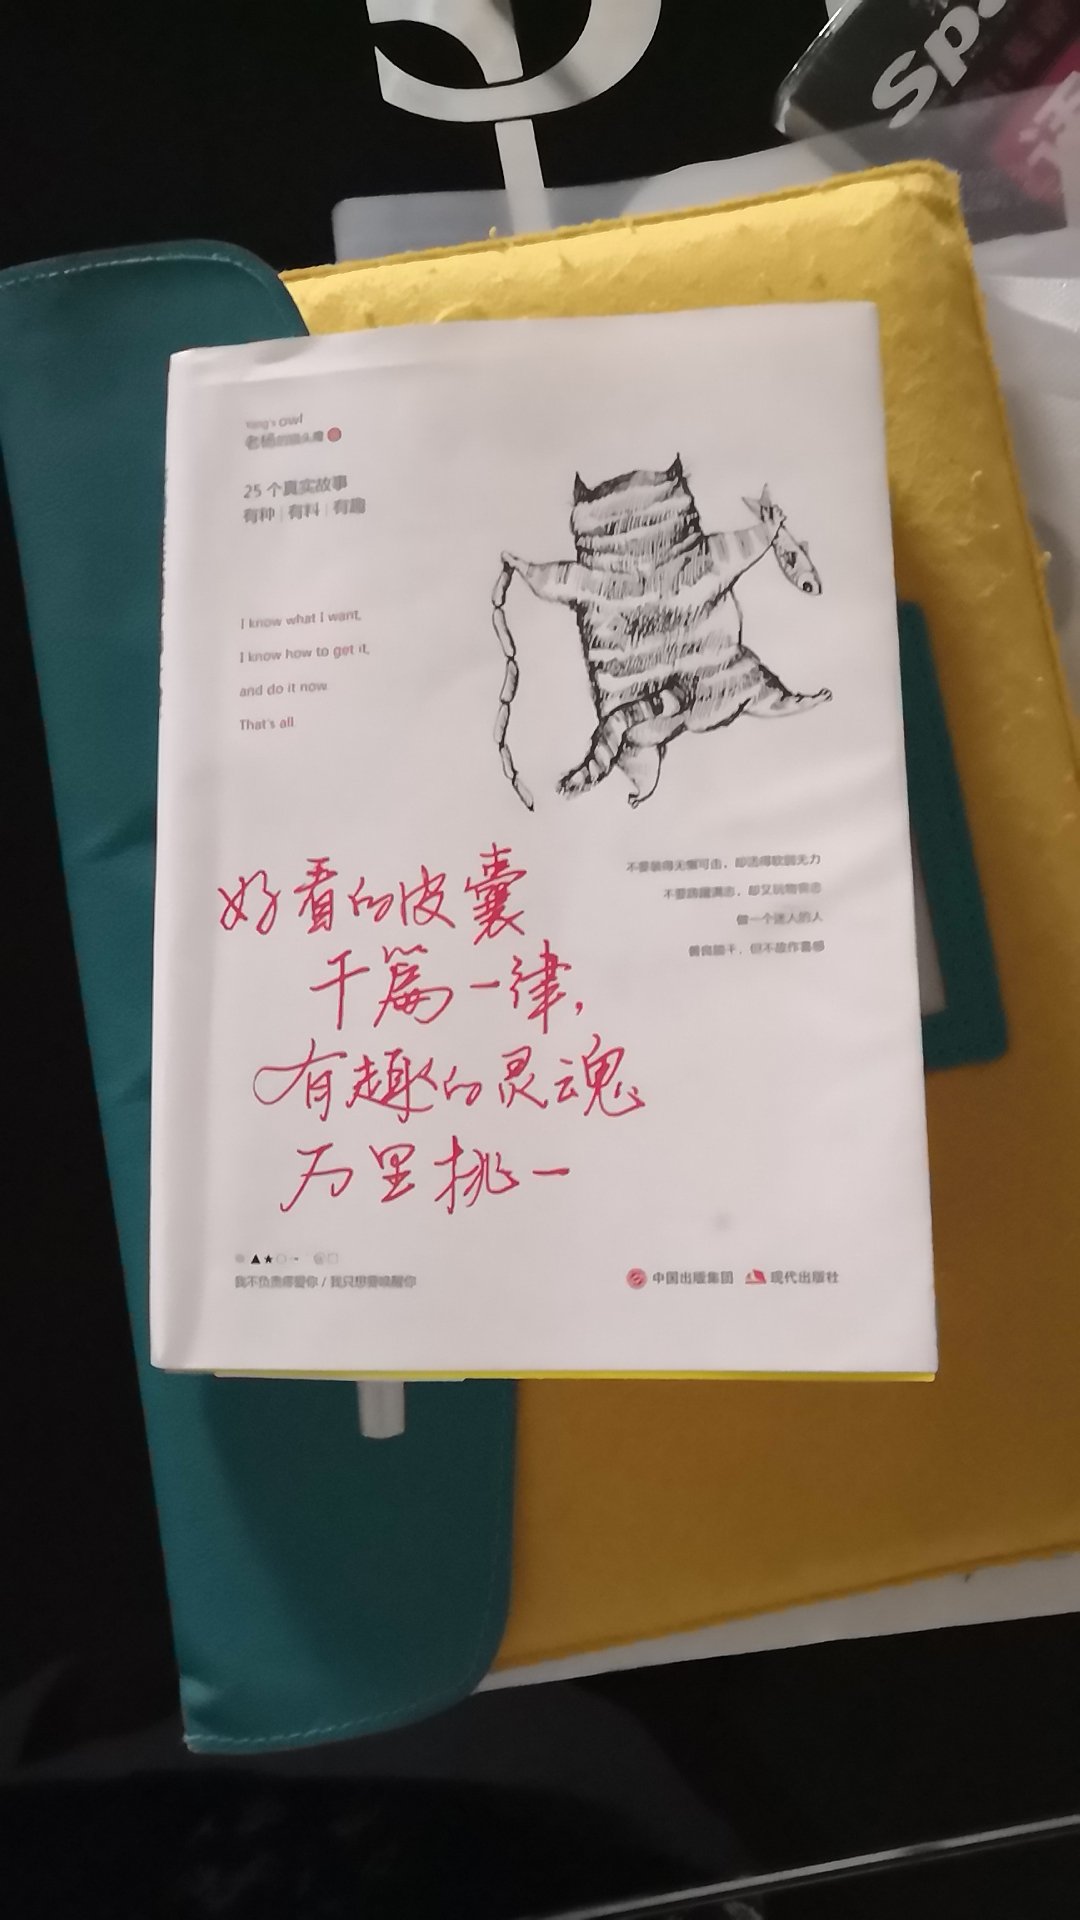 Spa
Yang's owl
老杨的猫头鹰
25个真实故事
有种|有料|有趣
I know what I want,
I know how to get it,
and do it now.
That's all
不要装得无懈可击，却活得软弱无力
不要踌躇满志，却又玩物丧志
做一个迷人的人
善良能干，但不故作喜感
好看的皮囊
千篇一律，
有趣的灵魂
万里挑一
我不负责得爱你 / 我只想要唤醒你
中国出版集团 现代出版社